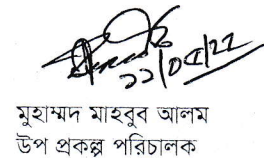 ১১/০৫/২২
মুহাম্মদ মাহবুব আলম
উপ প্রকল্প পরিচালক